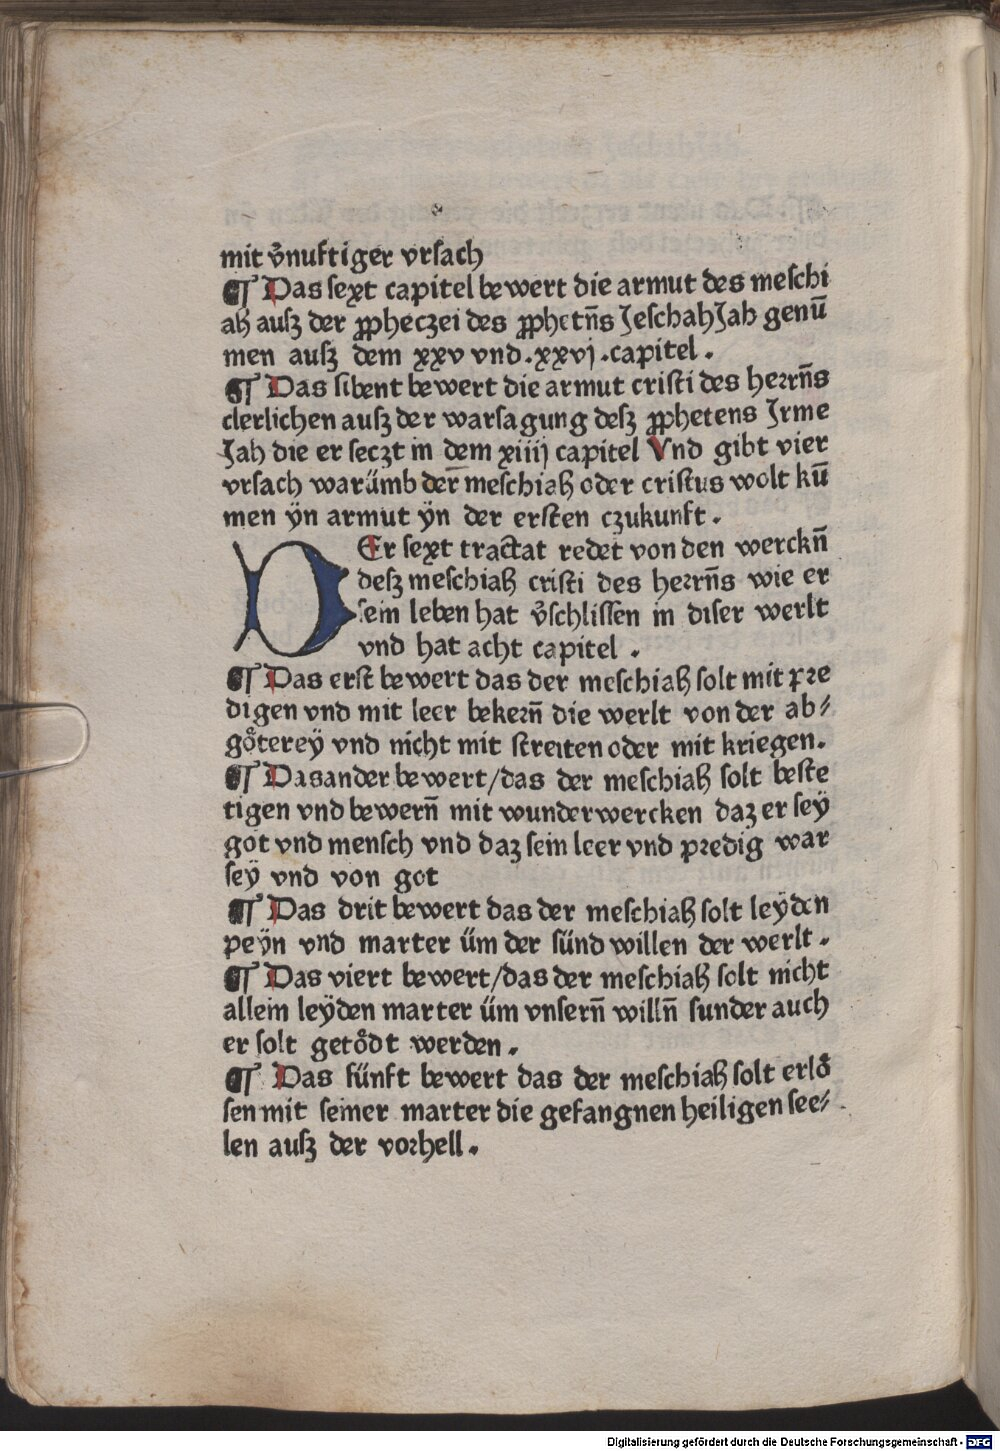 mit v̄nuftiger vrsach
¶ Das sext capitel bewert die armut des meschi
ah ausz der ꝓpheczei des ꝓphetn̄s JeschahJah genū
men ausz dem xxv vnd .xxvj .capitel .
¶ Das sibent bewert die armut cristi des herrn̄s
clerlichen ausz der warsagung desz ꝓphetens Jrme
Jah die er seczt in dem xiiij capitel Vnd gibt vier
vrsach warümb der̄ meschiah oder cristus wolt kū
men ÿn armut ÿn der ersten czukunft .
DEr sext tractat redet von den werckn̄
desz meschiah cristi des herrn̄s wie er
sein leben hat v̄schlissen in diser werlt
vnd hat acht capitel .
¶ Das erst bewert das der meschiah solt mit pre
digen vnd mit leer bekern̄ die werlt von der ab⸗
götereÿ vnd nicht mit streiten oder mit kriegen.
¶ Dasander bewert/das der meschiah solt beste
tigen vnd bewern̄ mit wunderwercken daz er seÿ
got vnd mensch vnd daz sein leer vnd predig war
seÿ vnd von got
¶ Das drit bewert das der meschiah solt leÿden
peÿn vnd marter üm der sünd willen der werlt .
¶ Das viert bewert/das der meschiah solt nicht
allein leÿden marter üm vnsern̄ willn̄ sunder auch
er solt getödt werden .
¶ Das fünft bewert das der meschiah solt erlö
sen mit seiner marter die gefangnen heiligen see⸗
len ausz der vorhell .
Digitalisierung gefördert durch die Deutsche Forschungsgemeinschaft - DFG